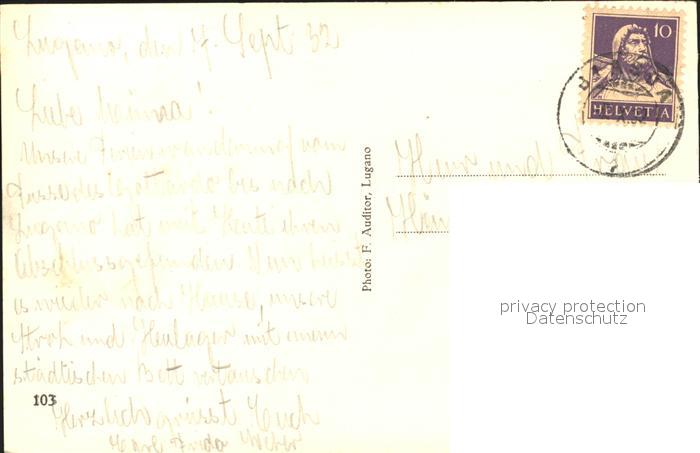 Lugano, den 4. Sept 32
Liebe
Unsere Ferienwanderung vom
Fusse des Gottardo bis nach
Lugano hat mit Heute ihren
Abschluss gefunden. Nun heisst
es wieder nach Hause, unsere
Stroh und Heulager mit einem
städtischen Bett vertauschen
Herzlich grüsst Euch
103
Photo: F. Auditor, Lugano
10
HELVETIA
Herr und
privacy protection
Datenschutz